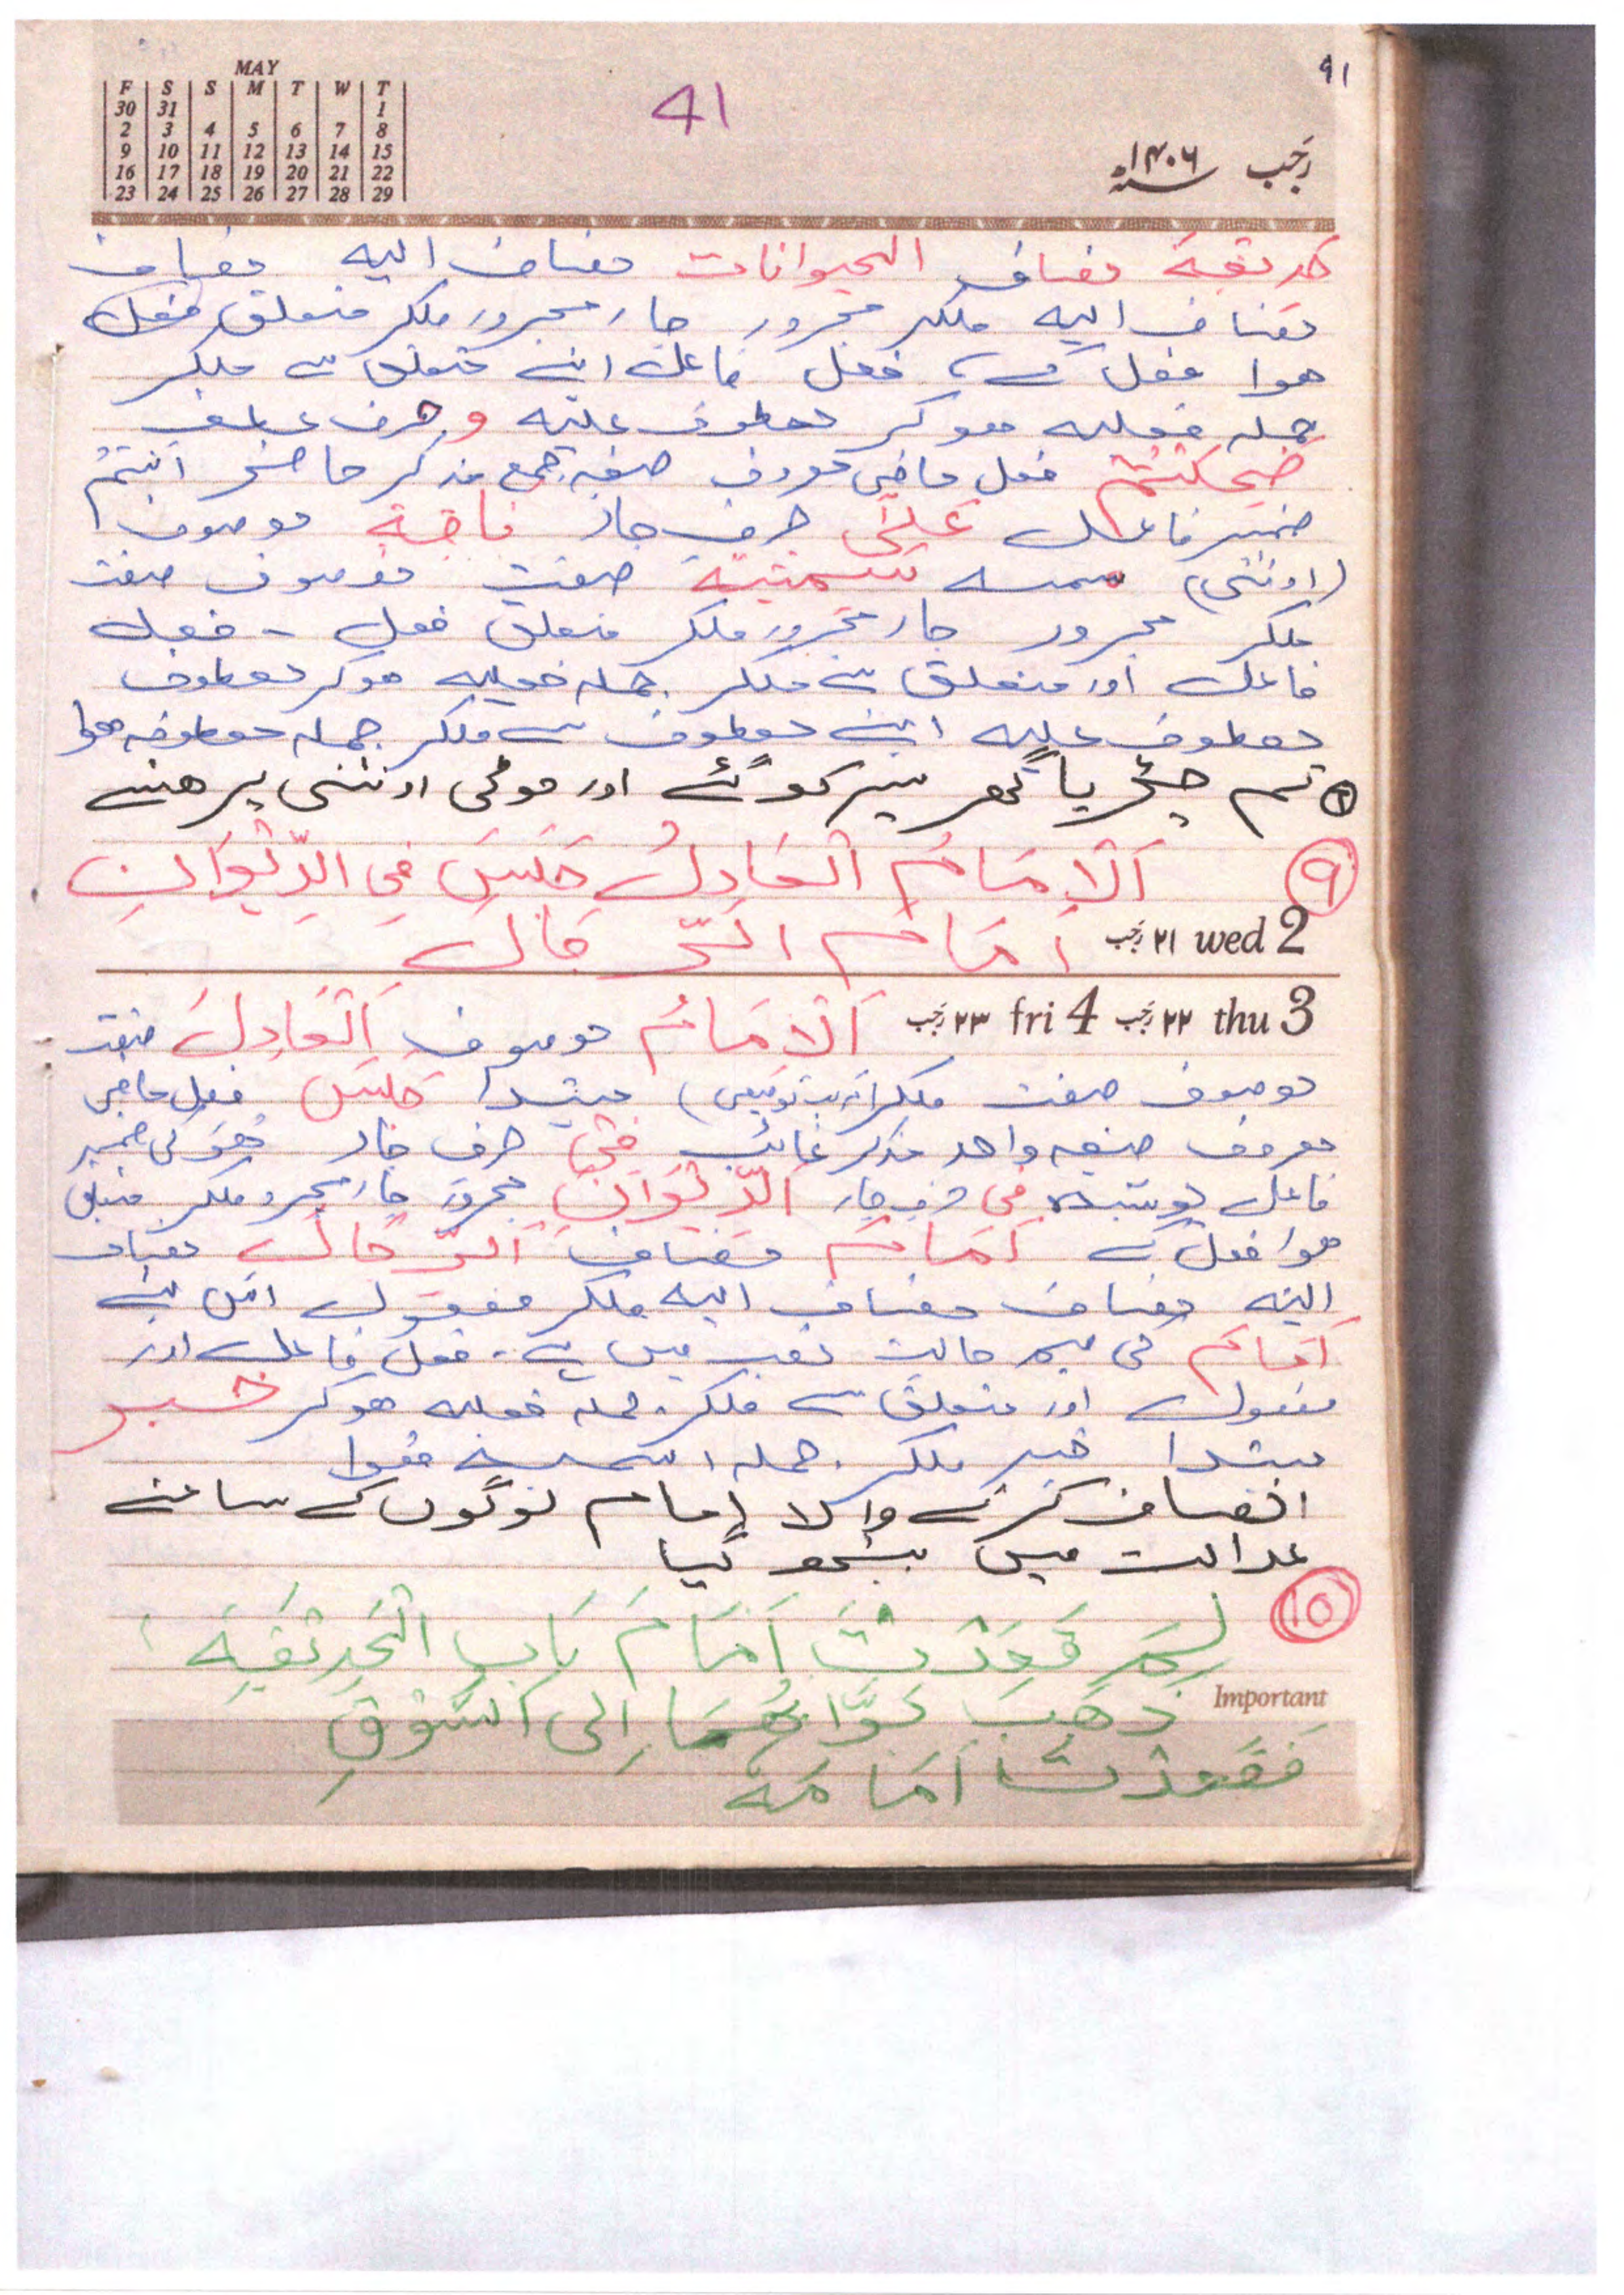 MAY
F S S M T W T
30 31 1
2 3 4 5 6 7 8
9 10 11 12 13 14 15
16 17 18 19 20 21 22
23 24 25 26 27 28 29
41
٩١
رجب سنہ ١٤٠٦ھ
حدیقة مضاف الحیوانات مضاف الیه مضاف
مضاف الیه ملکر مجرور جار مجرور ملکر متعلق فعل
هوا فعل سے، فعل فاعل اپنے متعلق سے ملکر
جمله فعلیه هوکر معطوف علیه و حرف عطف
ضَحِکْتُمْ فعل ماضی معروف صیغه جمع مذکر حاضر اَنْتُمْ
ضمیر فاعل عَلٰی حرف جار ناقة موصوف
(اونٹنی) سمینة صفت موصوف صفت
ملکر مجرور جار مجرور ملکر متعلق فعل - فعل
فاعل اور متعلق سے ملکر جمله فعلیه هوکر معطوف
معطوف علیه اپنے معطوف سے ملکر جمله معطوفه هوا
تم چڑیا گھر سیر کو گئے اور موٹی اونٹنی پر هنسے
٩ اَلْاِمَامُ الْعَادِلُ جَلَسَ فِی الدِّیْوَانِ
اَمَامَ الرِّجَالِ
٢١ رجب wed 2
٢٣ رجب fri 4 ٢٢ رجب thu 3
اَلْاِمَامُ موصوف اَلْعَادِلُ صفت
موصوف صفت ملکر (مرکب توصیفی) مبتدا جَلَسَ فعل ماضی
معروف صیغه واحد مذکر غائب فِی حرف جار هُوَ کی ضمیر
فاعل پوشیده فی حرف جار اَلدِّیْوَانِ مجرور جار مجرور ملکر متعلق
هوا فعل کے اَمَامَ مضاف اَلرِّجَالِ مضاف
الیه مضاف مضاف الیه ملکر مفعول اس لئے
اَمَامَ کی میم حالت نصب میں ہے. فعل فاعل اور
مفعول اور متعلق سے ملکر جمله فعلیه هوکر خبر
مبتدا خبر ملکر جمله اسمیه هوا
انصاف کرنے والا امام لوگوں کے سامنے
عدالت میں بیٹھ گیا
١٠ لِمَ قَعَدْتَ اَمَامَ بَابِ الْحَدِیْقَةِ ؟
Important
ذَهَبَ بَوَّابُهَا اِلَی السُّوْقِ
فَقَعَدْتُ اَمَامَهُ